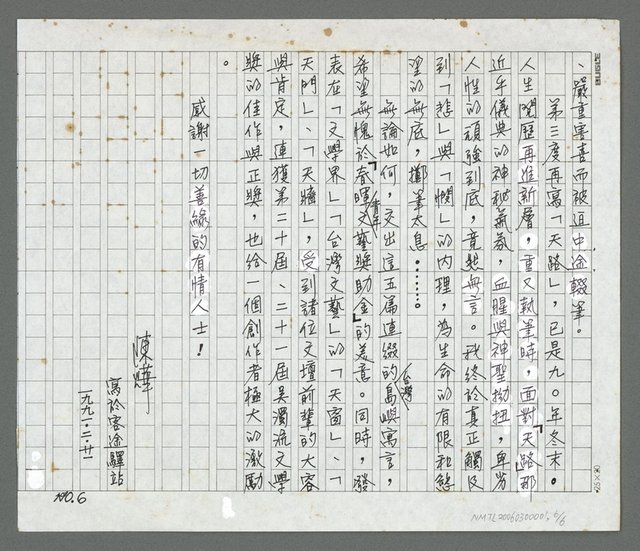 、嚴重害喜而被迫中途輟筆。
第三度再寫「天路」，已是九〇年冬末。
人生閱歷再進新層，重又執筆時，面對「天路」那
近乎儀典的神秘氣氛，血腥與神聖拗扭，卑劣
人性的頑強到底，竟然無言。我終於真正觸及
到「悲」與「憫」的內理，為生命的有限和慾
望的無底，擲筆太息。……
無論如何，交出這五篇連綴的台灣島嶼寓言，
希望無愧於「春暉青年文藝獎助金」的美意。同時，發
表在「文學界」、「台灣文藝」的「天窗」、「
天門」、「天牆」，受到諸位文壇前輩的大容
與肯定，連獲第二十屆、二十一屆吳濁流文學
獎的佳作與正獎，也給一個創作者極大的激勵
。
感謝一切善緣的有情人士！
陳燁
寫於客途驛站
一九九一・二・廿一
25×20
100.6
NMTL20060300001, 6/6